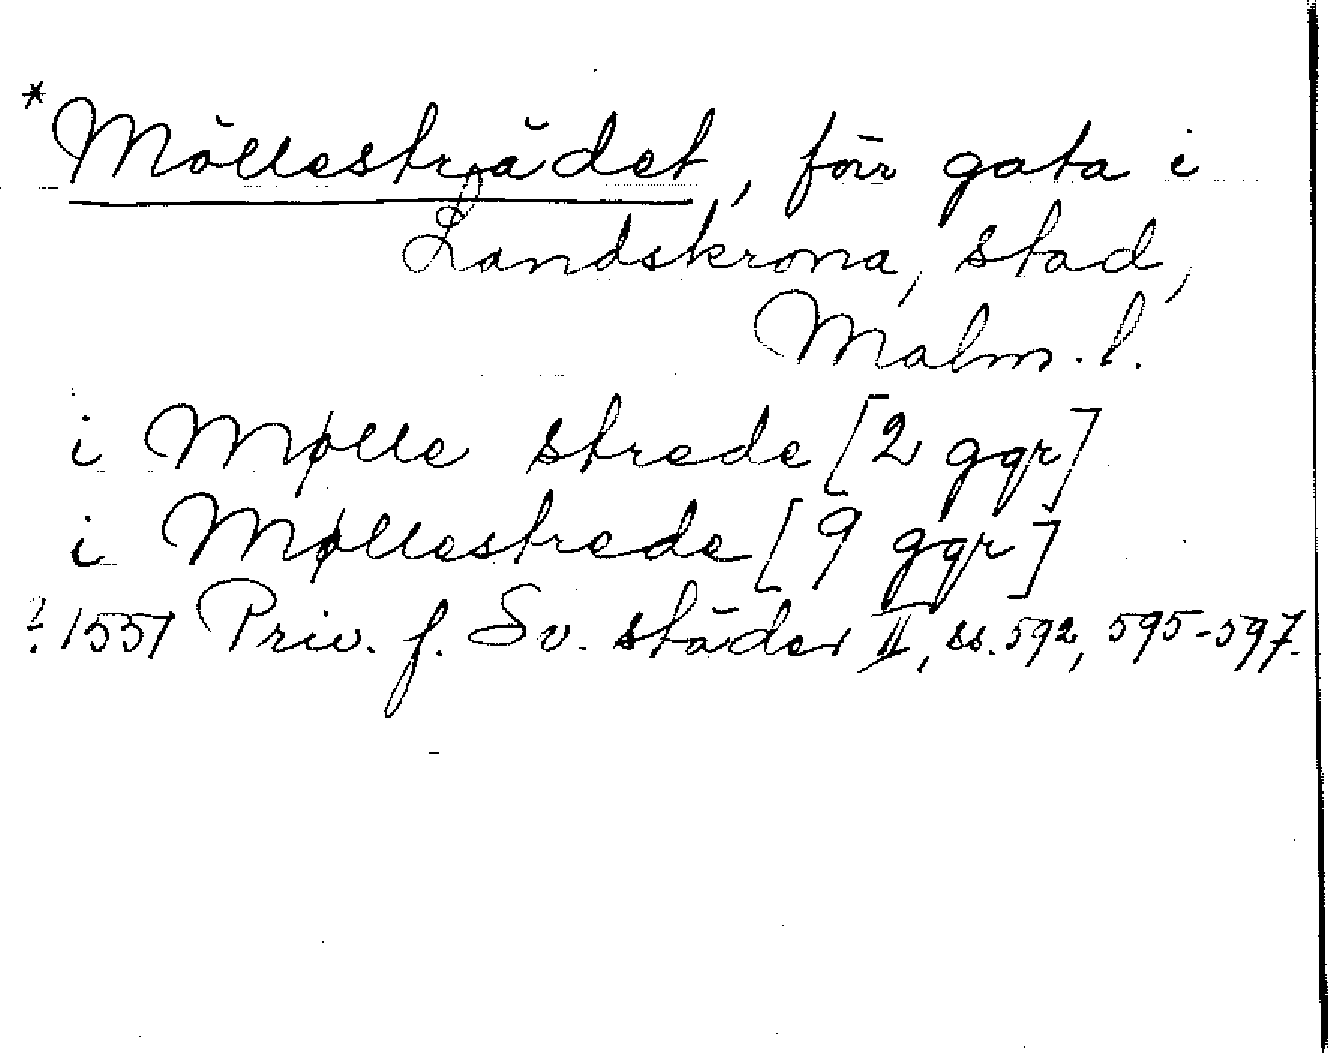 *Möllesträdet, förr gata i
Landskrona, stad,
Malm. l.
i Mølle strede [2 ggr]
i Møllestrede [9 ggr]
? 1557 Priv. f. Sv. städer II, ss. 592, 595-597.